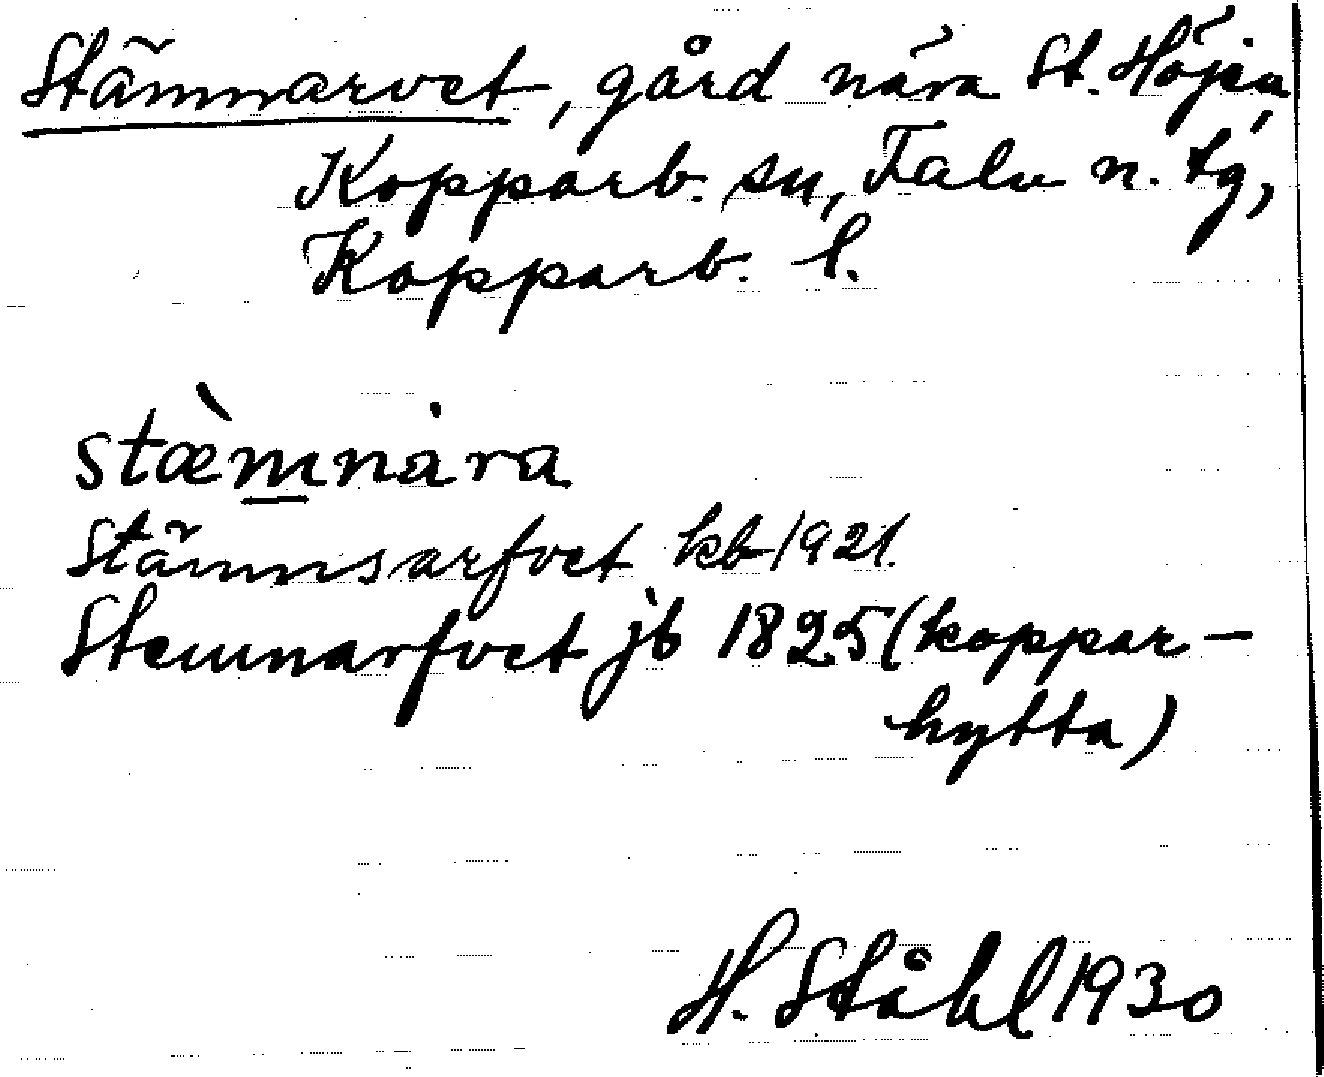 Stämnarvet, gård nära St. Höjen,
Kopparb. sn, Falu n. tg,
Kopparb. l.
stæ̀mnȧra
Stämnsarfvet kb 1921.
Stemnarfvet jb 1825 (koppar-
hytta)
H. Ståhl 1930